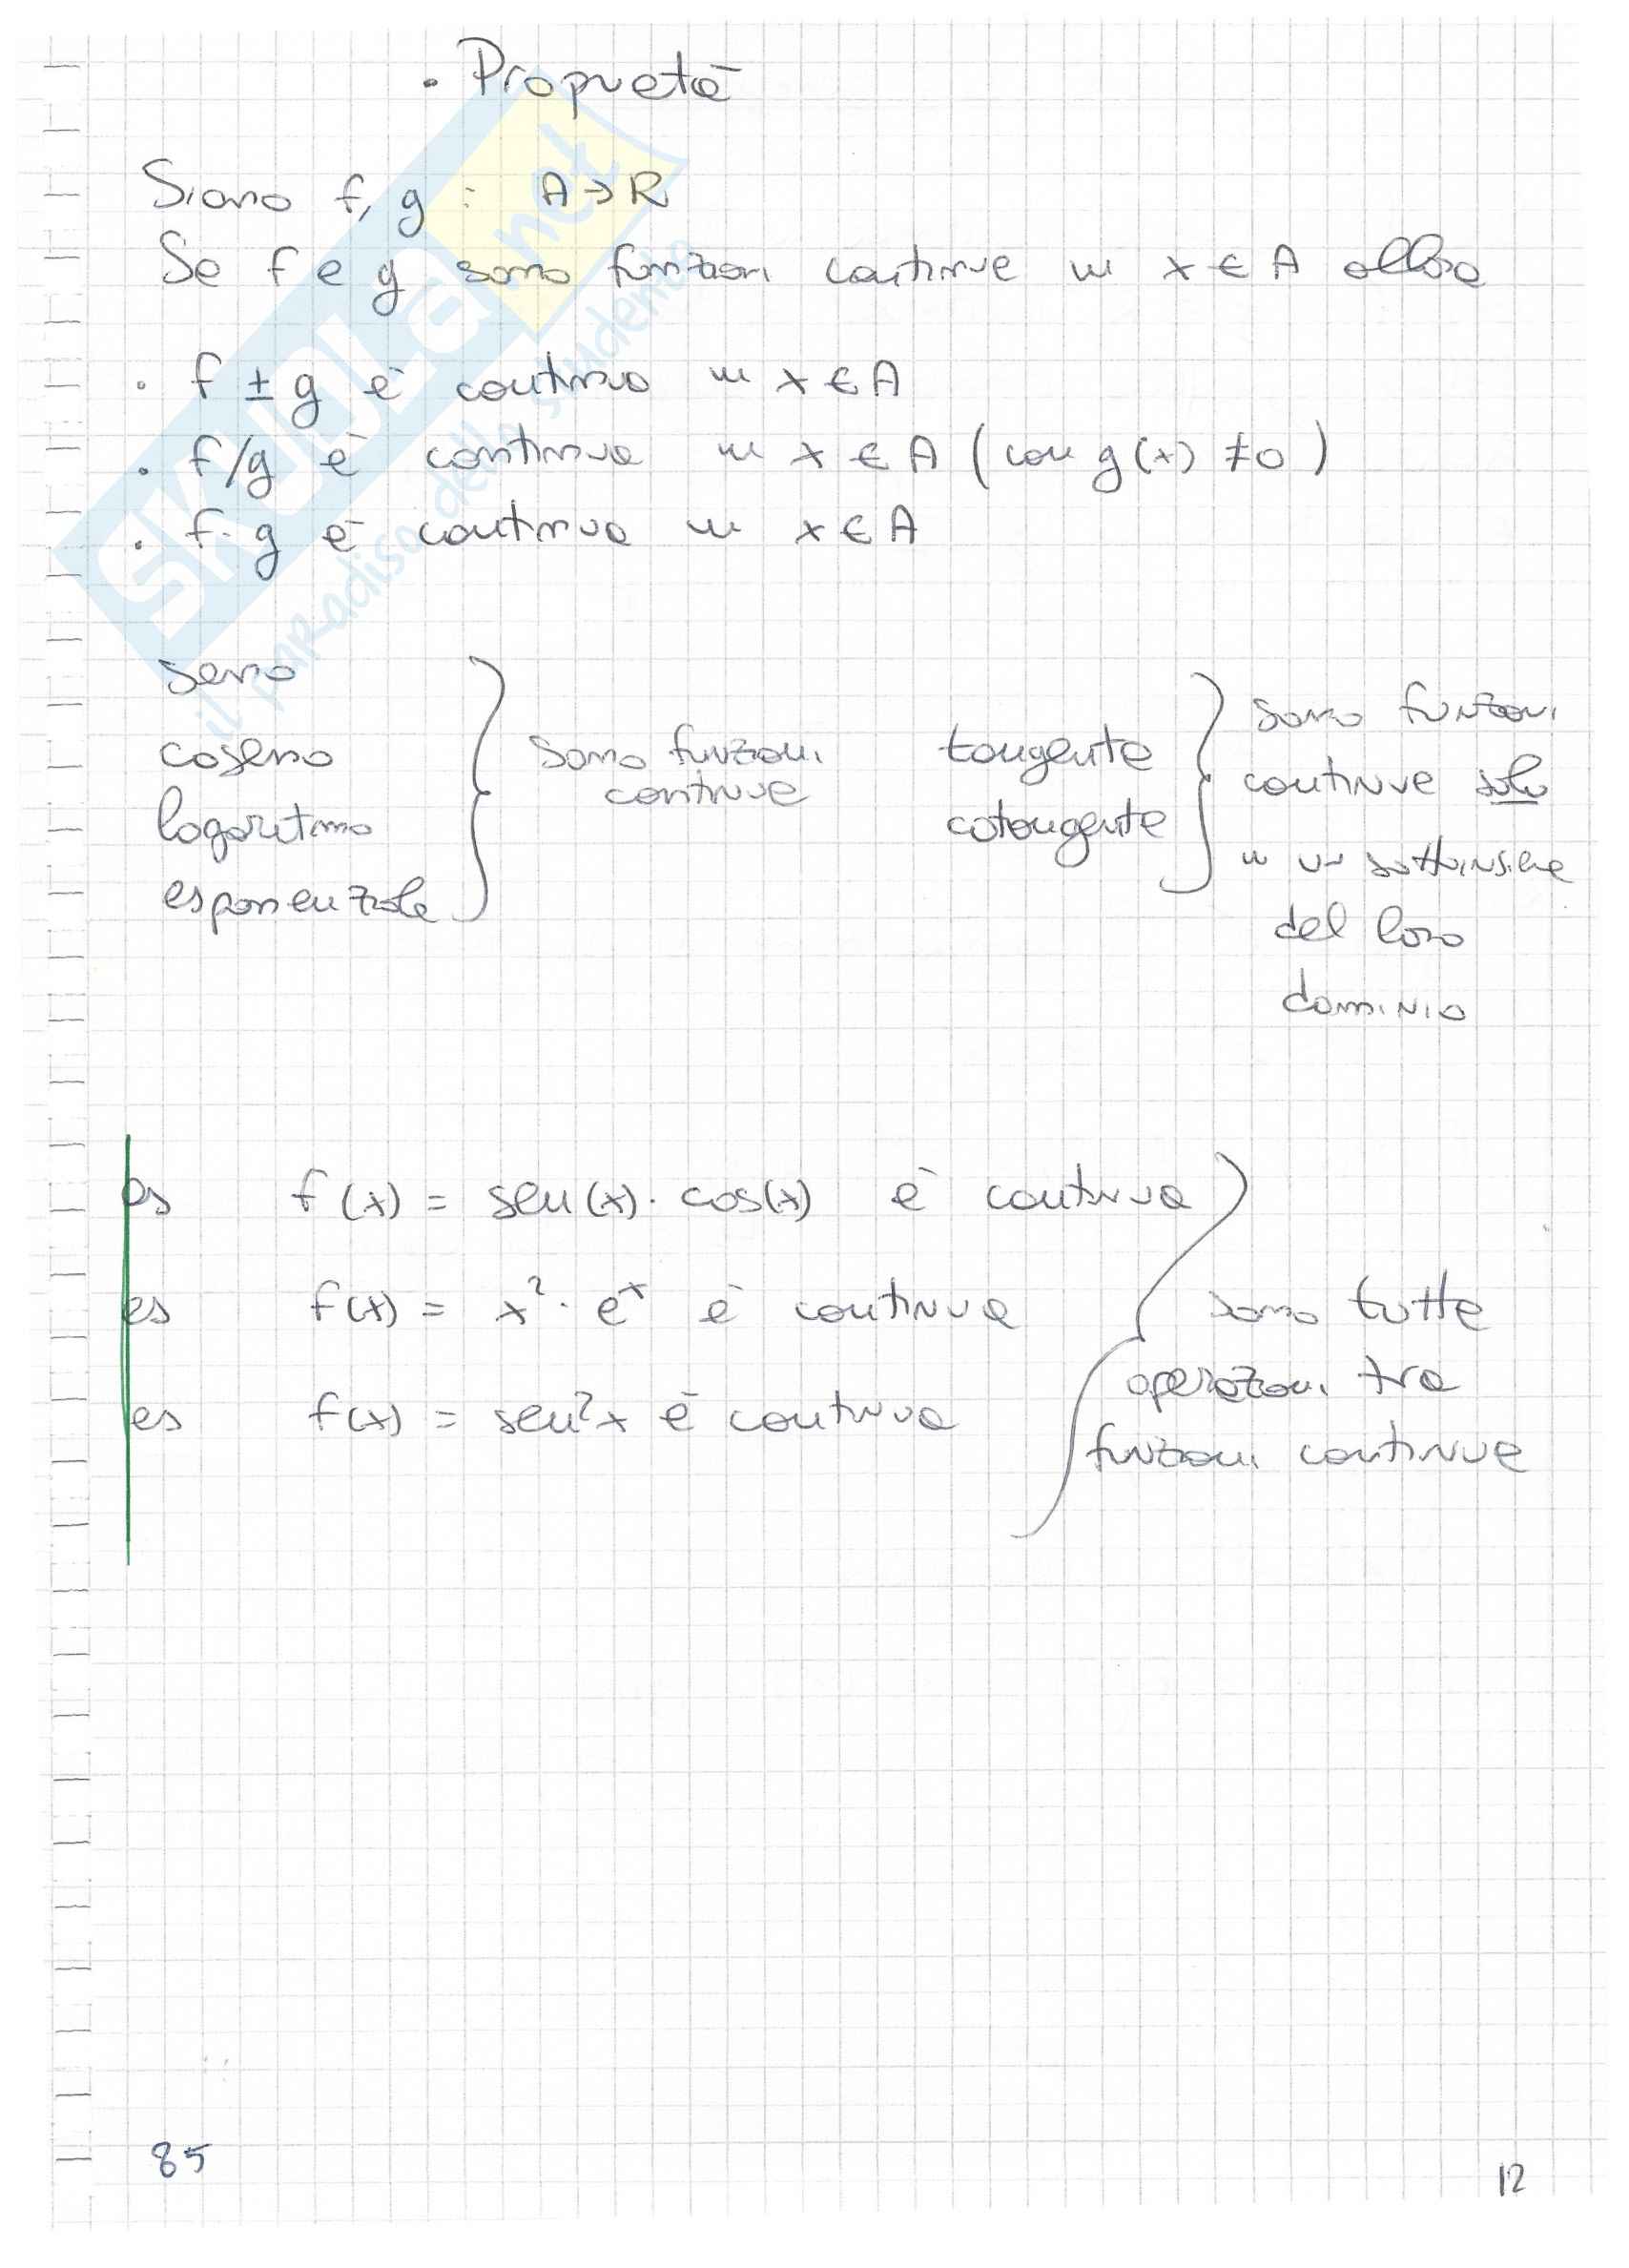 • Proprietà
Siano f, g : A → R
Se f e g sono funzioni continue in x ∈ A allora
• f ± g è continua in x ∈ A
• f/g è continua in x ∈ A (con g(x) ≠ 0)
• f·g è continua in x ∈ A
seno
coseno
logaritmo
esponenziale
sono funzioni
continue
tangente
cotangente
sono funzioni
continue solo
in un sottoinsieme
del loro
dominio
es f(x) = sen(x)·cos(x) è continua
es f(x) = x²·eˣ è continua
es f(x) = sen²x è continua
sono tutte
operazioni tra
funzioni continue
85
12
SKUOLA.net
il paradiso dello studente